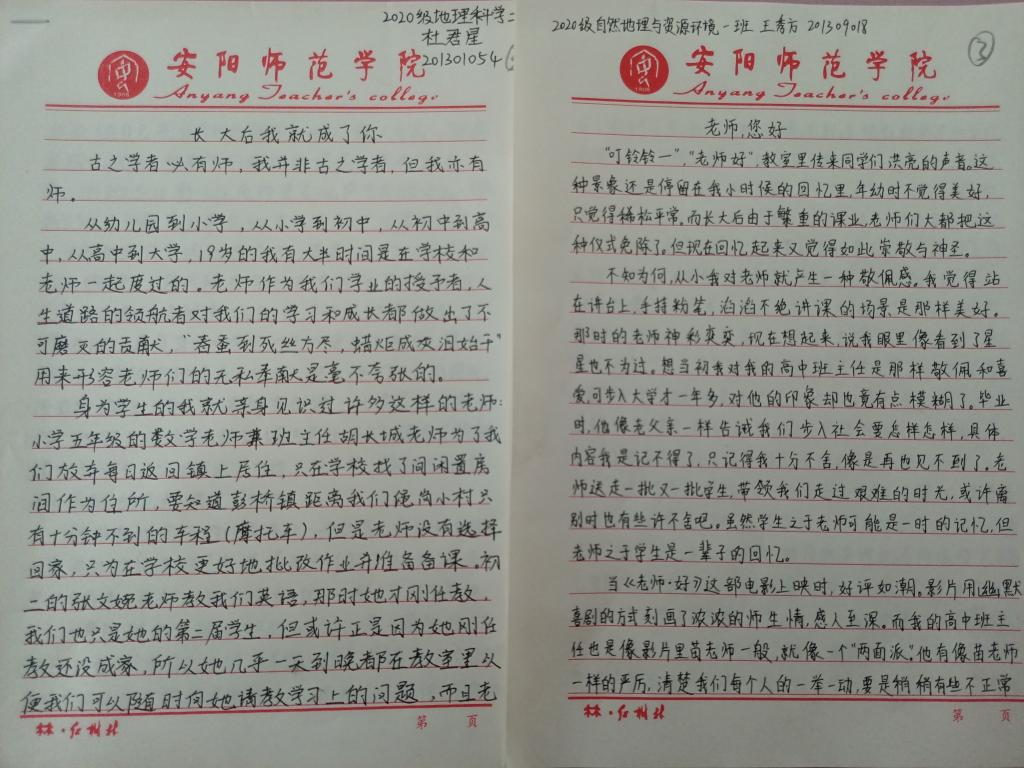 2020级地理科学二
杜君星
201301054
安阳师范学院
1908
Anyang Teacher's college
长大后我就成了你
古之学者必有师，我并非古之学者，但我亦有
师。
从幼儿园到小学，从小学到初中，从初中到高
中，从高中到大学，19岁的我有大半时间是在学校和
老师一起度过的。老师作为我们学业的授予者，人
生道路的领航者对我们的学习和成长都做出了不
可磨灭的贡献，“春蚕到死丝方尽，蜡炬成灰泪始干”
用来形容老师们的无私奉献是毫不夸张的。
身为学生的我就亲身见识过许多这样的老师：
小学五年级的数学老师兼班主任胡长城老师为了我
们放弃每日返回镇上居住，只在学校找了间闲置房
间作为住所，要知道彭桥镇距离我们便尚小村只
有十分钟不到的车程（摩托车），但是老师没有选择
回家，只为在学校更好地批改作业并准备备课。初
二的张文婉老师教我们英语，那时她才刚任教，
我们也只是她的第二届学生，但或许正是因为她刚任
教还没成家，所以她几乎一天到晚都在教室里以
便我们可以随时向她请教学习上的问题，而且老
林·红树北
第 页
2020级自然地理与资源环境一班 王秀方 201309018
3
安阳师范学院
1908
Anyang Teacher's college
老师，您好
“叮铃铃—”，“老师好”，教室里传来同学们洪亮的声音。这
种景象还是停留在我小时候的回忆里，年幼时不觉得美好，
只觉得稀松平常。而长大后由于繁重的课业，老师们大都把这
种仪式免除了。但现在回忆起来又觉得如此崇敬与神圣。
不知为何，从小我对老师就产生一种敬佩感。我觉得站
在讲台上，手持粉笔，滔滔不绝讲课的场景是那样美好。
那时的老师神彩奕奕，现在想起来，说我眼里像看到了星
星也不为过。想当初我对我的高中班主任是那样敬佩和喜
爱，可步入大学才一年多，对他的印象却也竟有点模糊了。毕业
时，他像老父亲一样告诫我们步入社会要怎样怎样，具体
内容我是记不得了，只记得我十分不舍，像是再也见不到了。老
师送走一批又一批学生，带领我们走过艰难的时光，或许离
别时也有些许不舍吧。虽然学生之于老师可能是一时的记忆，但
老师之于学生是一辈子的回忆。
当《老师·好》这部电影上映时，好评如潮。影片用幽默
喜剧的方式刻画了浓浓的师生情，感人至深。而我的高中班主
任也是像影片里苗老师一般，就像一个“两面派”。他有像苗老师
一样的严厉，清楚我们每个人的一举一动，要是稍稍有些不正常
林·红树北
第 页